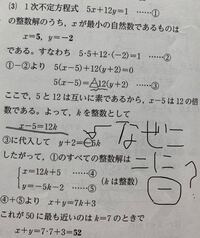 (3) 1次不定方程式 5x+12y=1 ……①
の整数解のうち，xが最小の自然数であるものは
x=5, y=-2
である。すなわち 5・5+12・(-2)=1 ……②
①-②より 5(x-5)+12(y+2)=0
5(x-5)=-12(y+2) ……③
ここで，5と12は互いに素であるから，x-5は12の倍
数である。よって，kを整数として
x-5=12k
③に代入して y+2=-5k
したがって，①のすべての整数解は
x=12k+5 ……④
y=-5k-2 ……⑤
(kは整数)
④+⑤より x+y=7k+3
これが50に最も近いのはk=7のときで
x+y=7・7+3=52
なぜー
ここに
⊖?